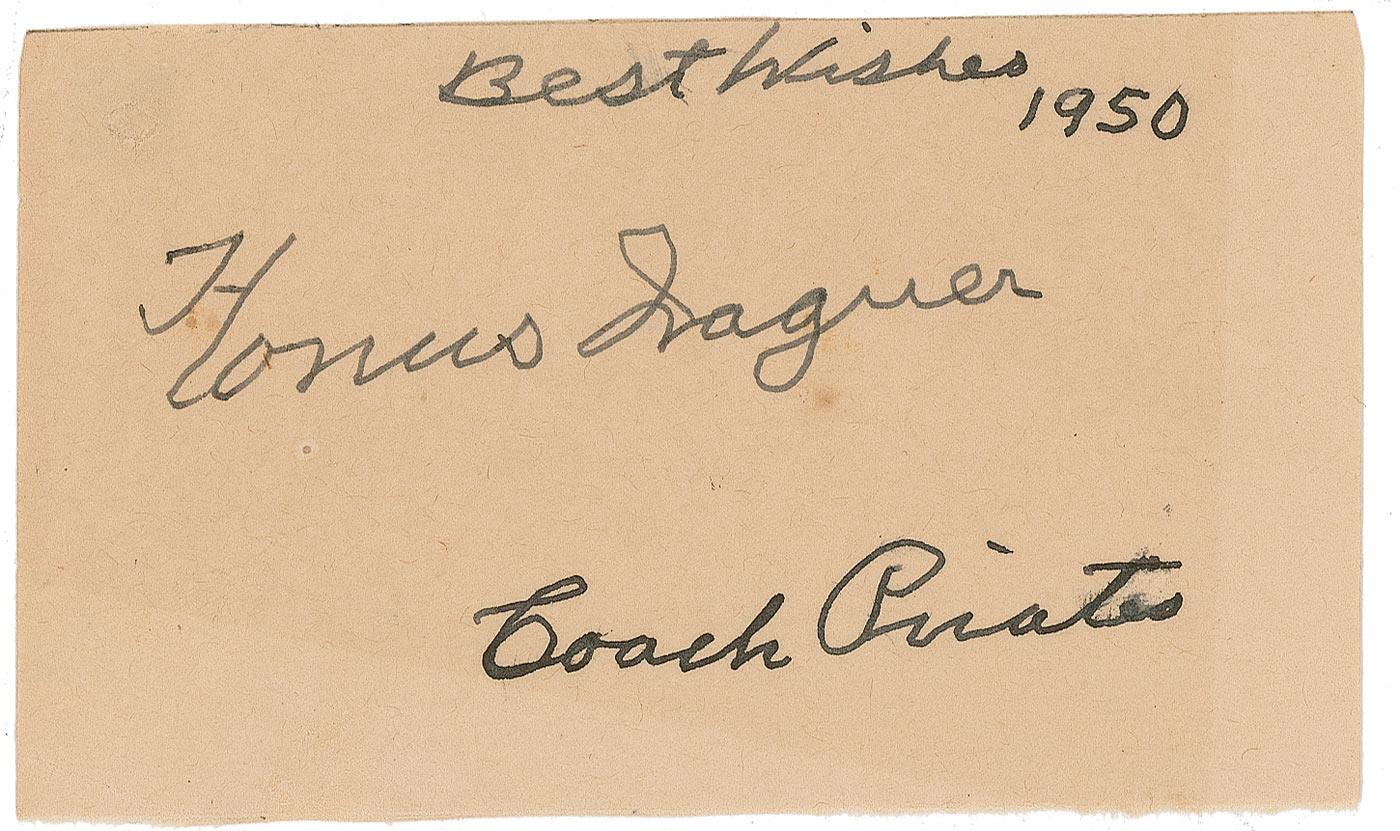 Best Wishes
1950
Honus Wagner
Coach Pirates